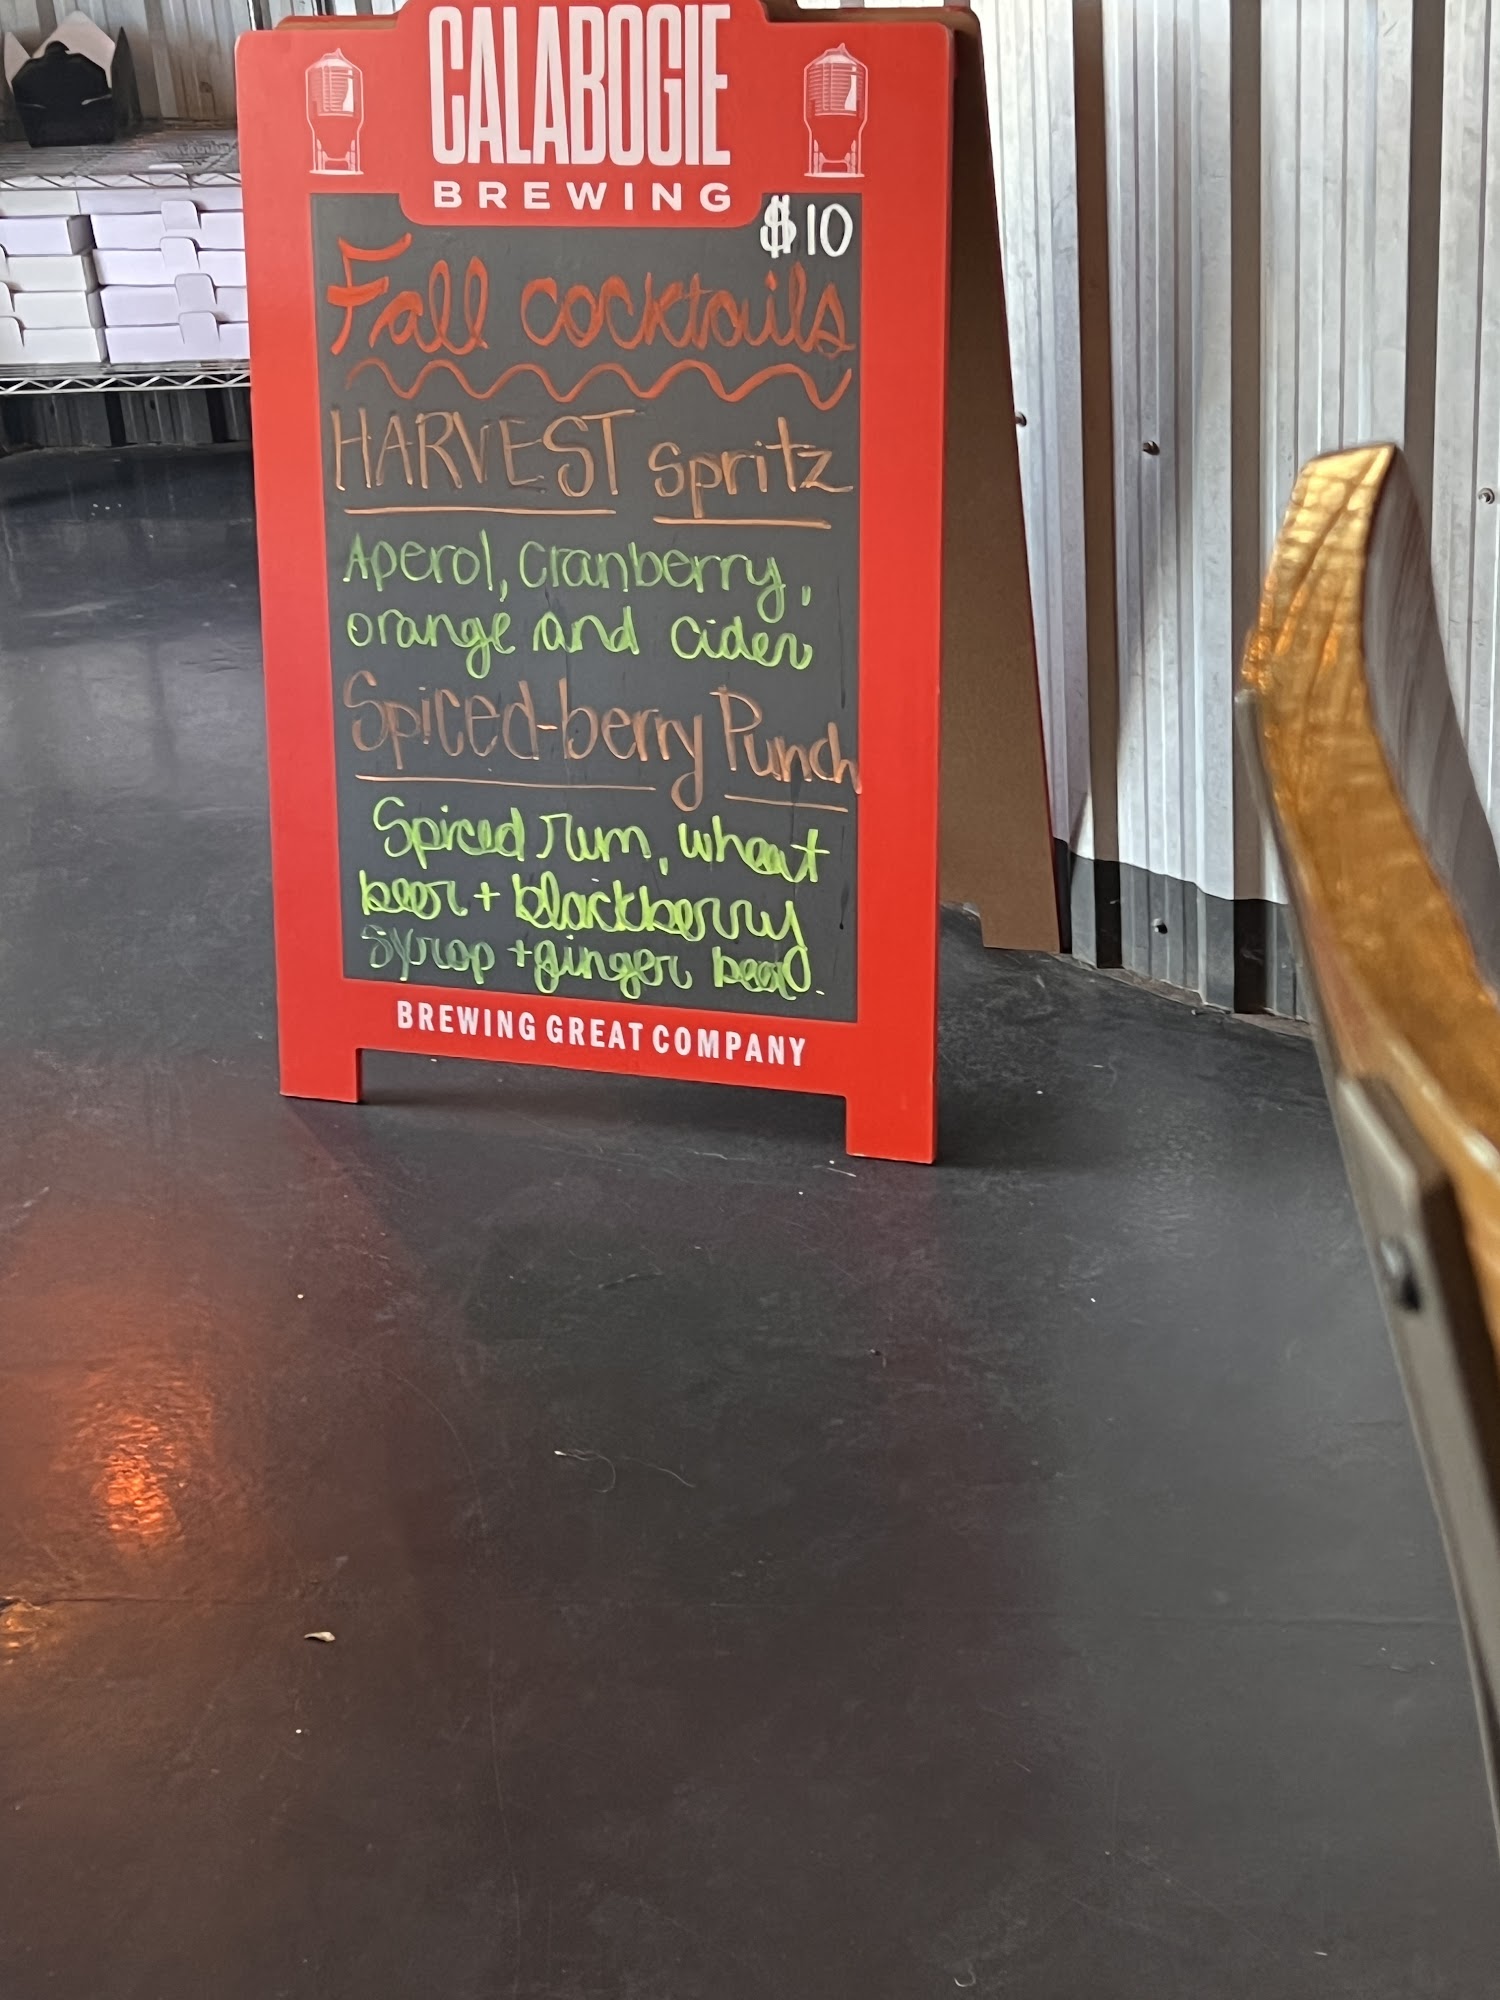 CALABOGIE
BREWING
$10
Fall cocktails
HARVEST Spritz
Aperol, Cranberry,
orange and cider
Spiced-berry Punch
Spiced rum, wheat
beer + blackberry
syrup + ginger beer.
BREWING GREAT COMPANY